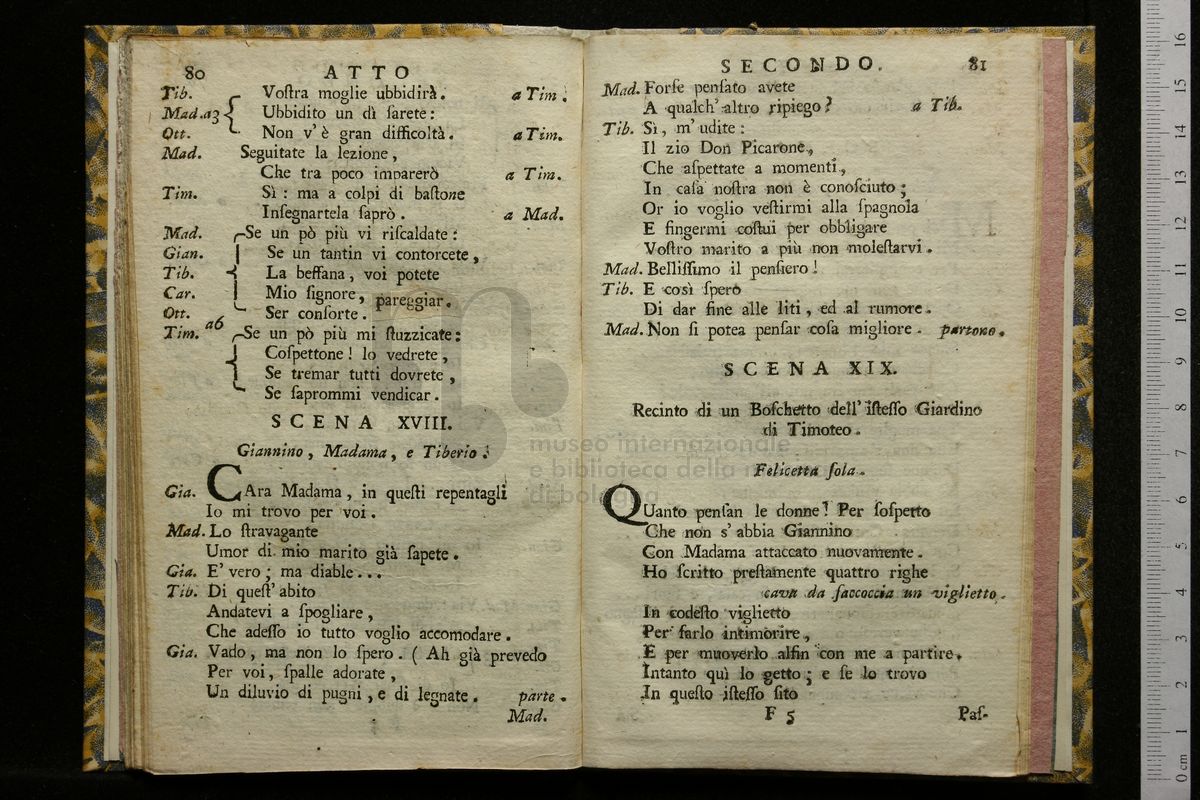 80 ATTO
Tib. Voſtra moglie ubbidirà. a Tim.
Mad. a3 Ubbidito un dì ſarete:
Ott. Non v'è gran difficoltà. a Tim.
Mad. Seguitate la lezione,
Che tra poco imparerò a Tim.
Tim. Sì: ma a colpi di baſtone
Inſegnartela ſaprò. a Mad.
Mad. Se un pò più vi riſcaldate:
Gian. Se un tantin vi contorcete,
Tib. La beffana, voi potete
Car. Mio ſignore, pareggiar.
Ott. Ser conſorte.
Tim. a6 Se un pò più mi ſtuzzicate:
Coſpettone! lo vedrete,
Se tremar tutti dovrete,
Se ſaprommi vendicar.
SCENA XVIII.
Giannino, Madama, e Tiberio.
Gia. CAra Madama, in queſti repentagli
Io mi trovo per voi.
Mad. Lo ſtravagante
Umor di mio marito già ſapete.
Gia. E' vero; ma diable...
Tib. Di queſt'abito
Andatevi a ſpogliare,
Che adeſſo io tutto voglio accomodare.
Gia. Vado, ma non lo ſpero. (Ah già prevedo
Per voi, ſpalle adorate,
Un diluvio di pugni, e di legnate. parte.
Mad.
SECONDO. 81
Mad. Forſe penſato avete
A qualch'altro ripiego? a Tib.
Tib. Sì, m'udite:
Il zio Don Picarone,
Che aſpettate a momenti,
In caſa noſtra non è conoſciuto;
Or io voglio veſtirmi alla ſpagnola
E fingermi coſtui per obbligare
Voſtro marito a più non moleſtarvi.
Mad. Belliſſimo il penſiero!
Tib. E così ſpero
Di dar fine alle liti, ed al rumore.
Mad. Non ſi potea penſar coſa migliore. partono.
SCENA XIX.
Recinto di un Boſchetto dell'iſteſſo Giardino
di Timoteo.
Felicetta ſola.
QUanto penſan le donne! Per ſoſpetto
Che non s'abbia Giannino
Con Madama attaccato nuovamente.
Ho ſcritto preſtamente quattro righe
cava da ſaccoccia un viglietto.
In codeſto viglietto
Per farlo intimorire,
E per muoverlo alfin con me a partire.
Intanto quì lo getto; e ſe lo trovo
In queſto iſteſſo ſito
F 5 Paſ-
museo internazionale
e biblioteca della
di bologna
0 cm 1 2 3 4 5 6 7 8 9 10 11 12 13 14 15 16